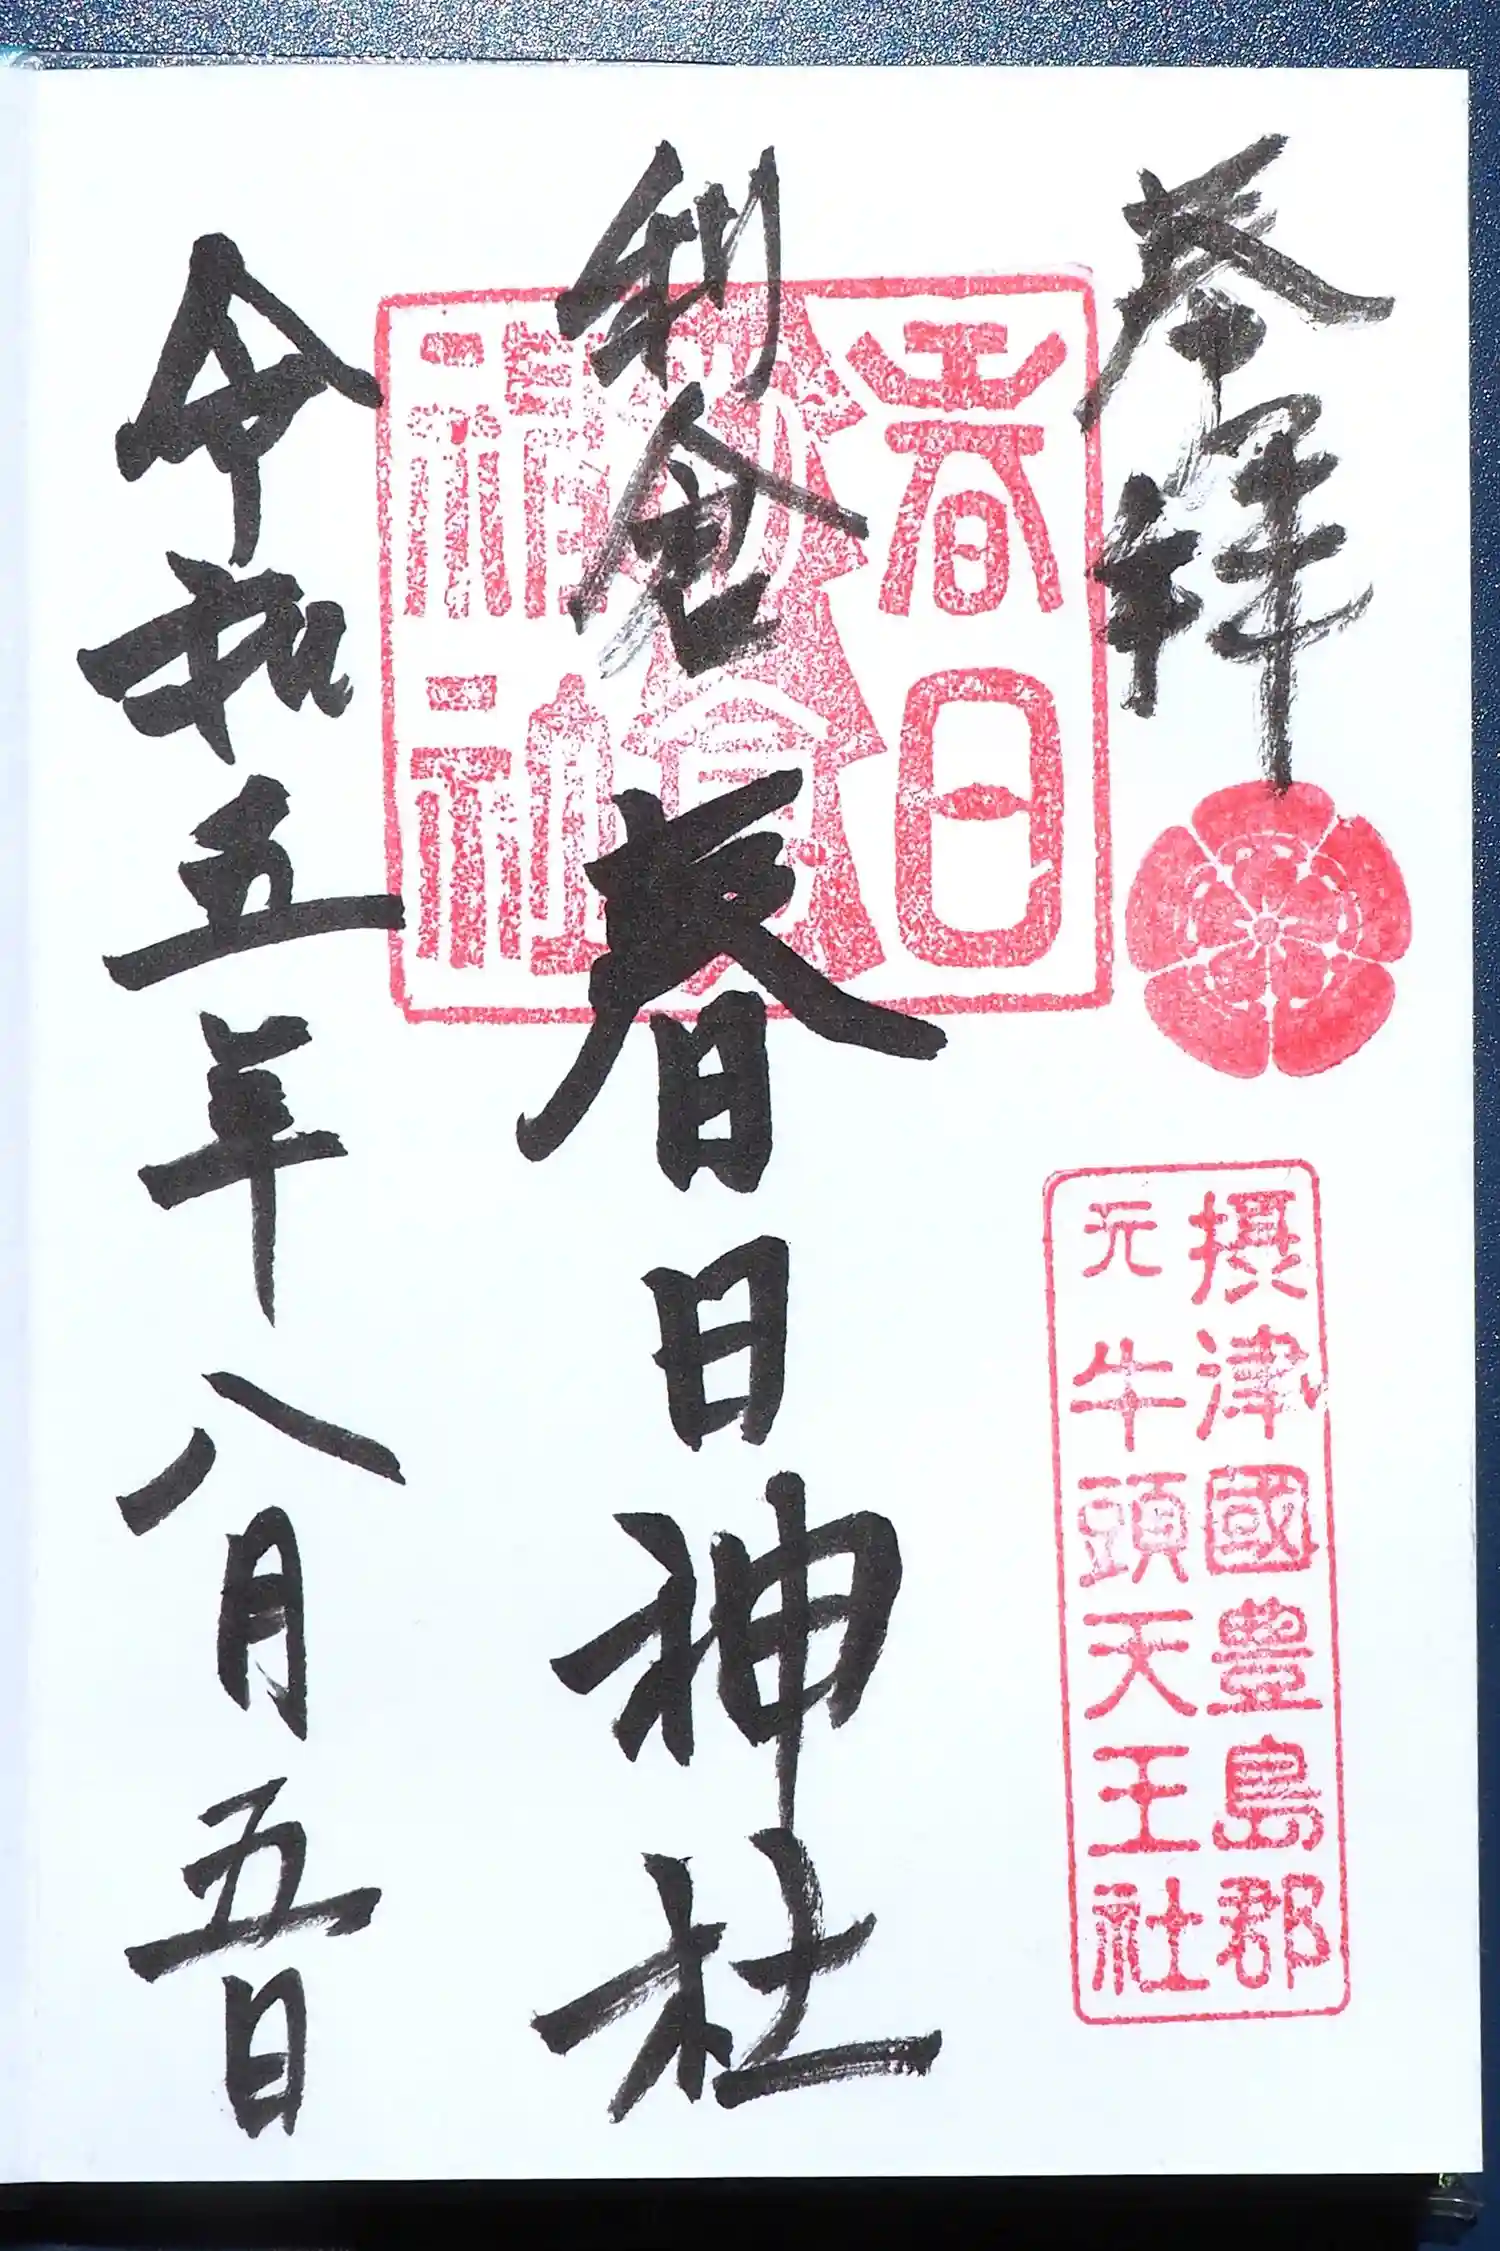 奉拝
摂津國豊島郡
元牛頭天王社
春日
利倉
神社
利倉春日神社
令和五年八月五日